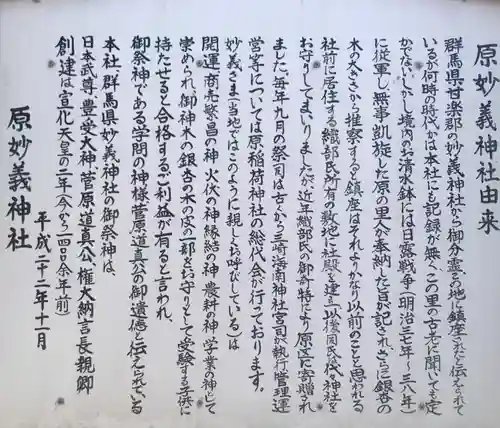 原妙義神社由来
群馬県甘楽郡の妙義神社から御分霊がこの地に鎮座されたと伝えられて
いるが何時の時代かは本社にも記録が無く、この里の古老に聞いても定
かでない。しかし境内の清水鉢には日露戦争(明治三七年〜三八年)
に従軍し無事凱旋した原の里人が奉納した旨が記され、さらに銀杏の
木の大きさから推察すると鎮座はそれよりかなり以前のことと思われる
社前に居住する織部氏所有の敷地に社殿を建立、以後同氏代々神社を
お守りしてまいりましたが、近年織部氏の御奇特により原区に寄贈され
ました。毎年九月の祭司は古くから三崎海南神社宮司が執行、管理運
営については原稲荷神社の総代会が行っております。
妙義さま(当地ではこのように親しくお呼びしている)は
開運、商売繁昌の神、火伏の神、縁結の神、農耕の神、学業の神にて
崇められ、御神木の銀杏の木の皮の一部をお守りとして受験する子供に
持たせると合格するご利益が有ると言われ、
御祭神である学問の神様菅原道真公の御遺徳と伝えられている
本社、群馬県妙義神社の御祭神は、
日本武尊、豊受大神、菅原道真公、権大納言長親卿
創建は宣化天皇の二年(今から一四〇〇余年前)
平成二十二年十一月
原妙義神社